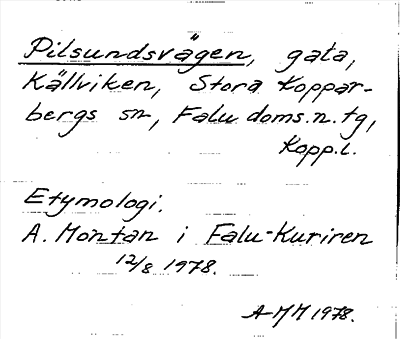 Pilsundsvägen, gata,
Källviken, Stora Koppar-
bergs sn, Falu doms.n.tg,
Kopp.l.
Etymologi.
A. Montan i Falu-Kuriren
12/8 1978.
AMM 1978.